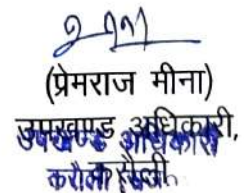 (प्रेमराज मीना)
उपखण्ड अधिकारी,
उपखण्ड अधिकारी
करौली
करौली